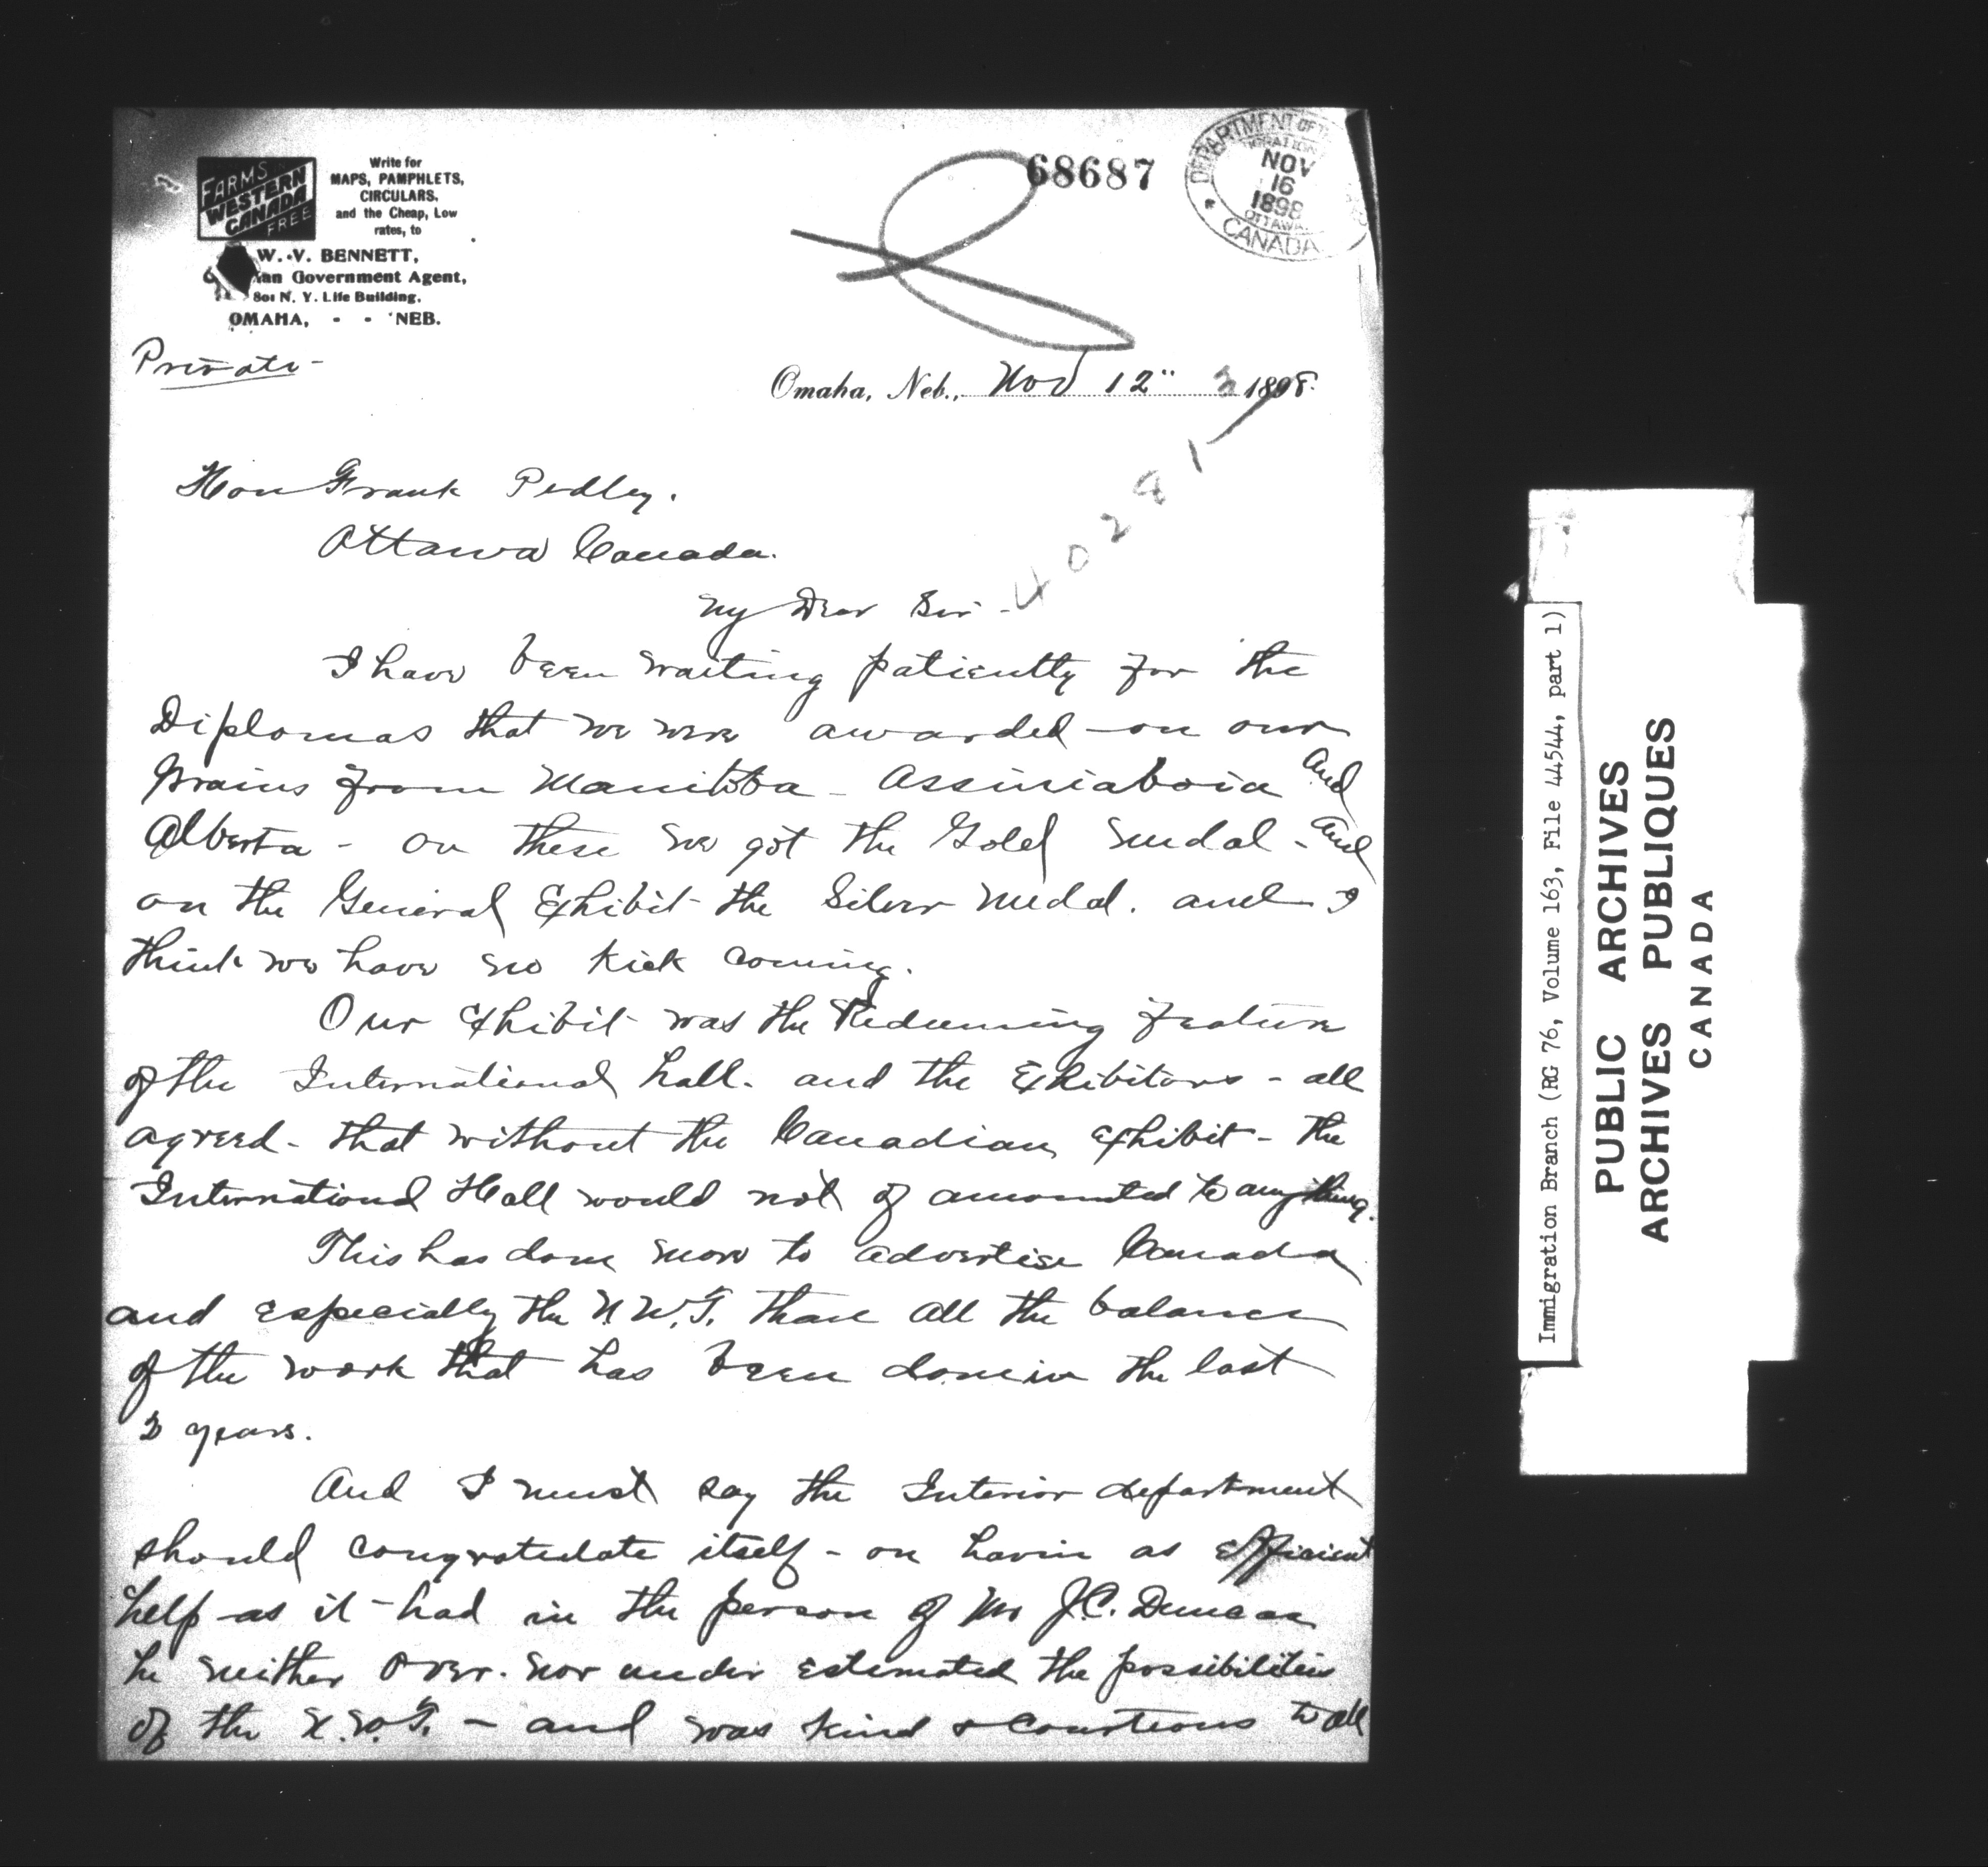 FARMS
WESTERN
CANADA
FREE
Write for
MAPS, PAMPHLETS,
CIRCULARS,
and the Cheap, Low
rates, to
W. V. BENNETT,
an Government Agent,
801 N. Y. Life Building,
OMAHA, - - NEB.
68687
DEPARTMENT OF
NOV
16
1898
OTTAWA.
CANADA
Private-
Omaha, Neb., Nov 12" 1898.
40281
Hon Frank Pedley.
Ottawa Canada.
My Dear Sir-
I have been waiting patiently for the
Diplomas that we were awarded - on our
Grains from Manitoba - Assiniaboia and
Alberta - on these we got the Gold medal - and
on the General Exhibit - the Silver medal. and I
think we have no kick coming.
Our Exhibit - was the Redeeming feature
of the International hall. and the Exhibitors - all
agreed - that without the Canadian Exhibit - the
International Hall would not of amounted to anything.
This has done more to advertise Canada
and especially the N.W.T. than all the balance
of the work that has been done in the last
years.
And I must say the Interior department
should congratulate itself - on havin as efficient
help - as it - had in the person of Mr J.C. Duncan
he neither over. nor under estimated the possibilities
of the N.W.T. - and was kind & courteous to all
Immigration Branch (RG 76, Volume 163, File 44544, part 1)
PUBLIC ARCHIVES
ARCHIVES PUBLIQUES
CANADA